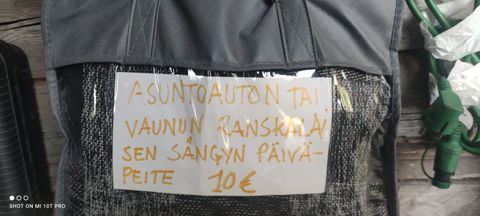 ASUNTOAUTON TAI
VAUNUN RANSKALAI
SEN SÄNGYN PÄIVÄ-
PEITE 10€
SHOT ON MI 10T PRO